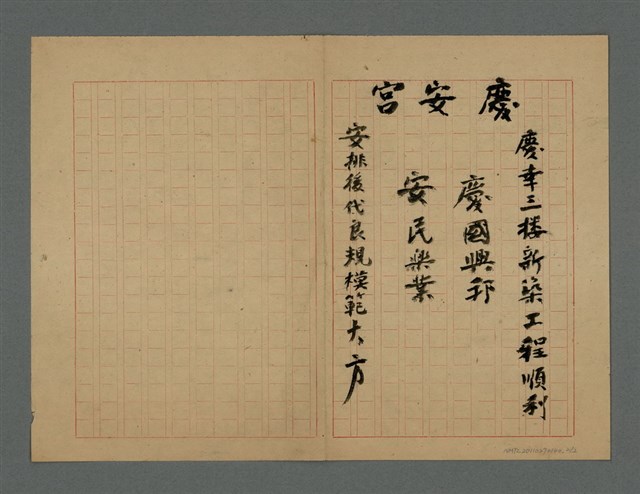 慶安宮
慶幸三楼新築工程順利
慶國興邦
安民楽業
安排後代良規模範大方